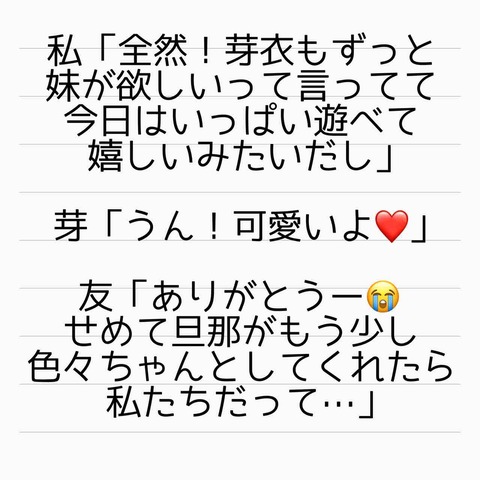 私「全然！芽衣もずっと
妹が欲しいって言ってて
今日はいっぱい遊べて
嬉しいみたいだし」
芽「うん！可愛いよ❤️」
友「ありがとうー😭
せめて旦那がもう少し
色々ちゃんとしてくれたら
私たちだって…」